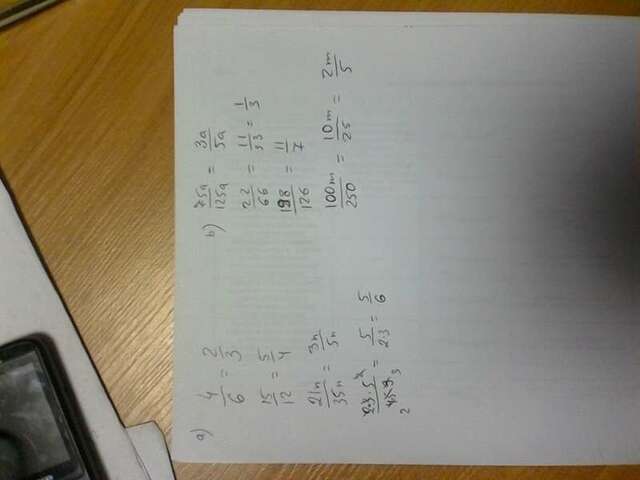 a)
4/6 = 2/3
15/12 = 5/4
21n/35n = 3n/5n
5/2·3 = 5/6
b)
75a/125a = 3a/5a
22/66 = 11/33 = 1/3
198/126 = 11/7
100m/250 = 10m/25 = 2m/5